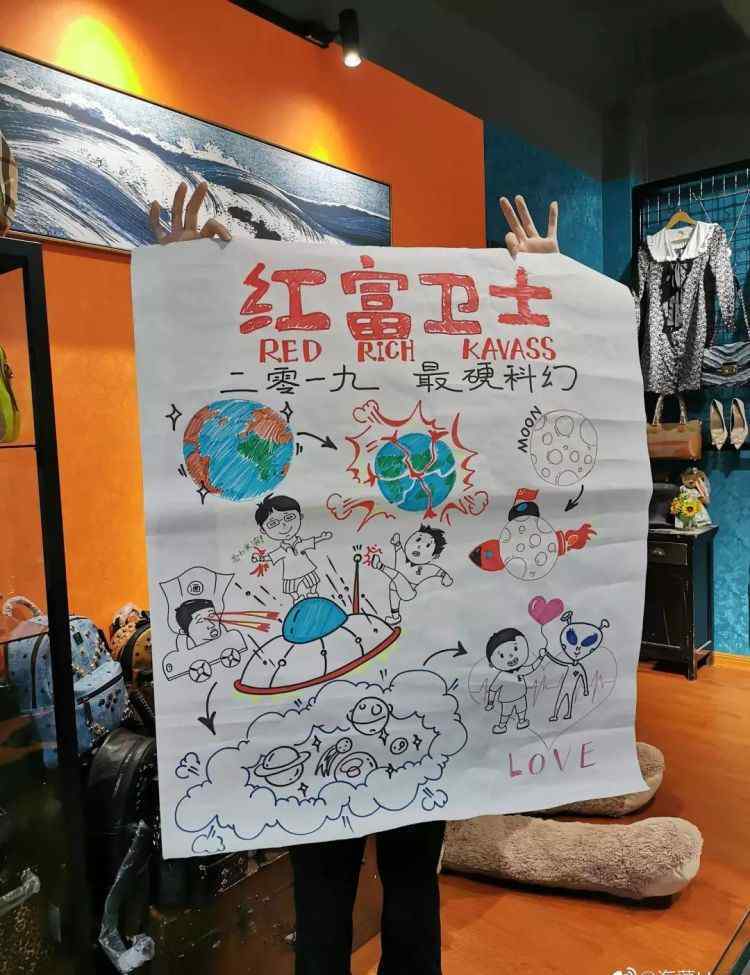 红富卫士
RED RICH KAVASS
二零一九 最硬科幻
MOON
LOVE